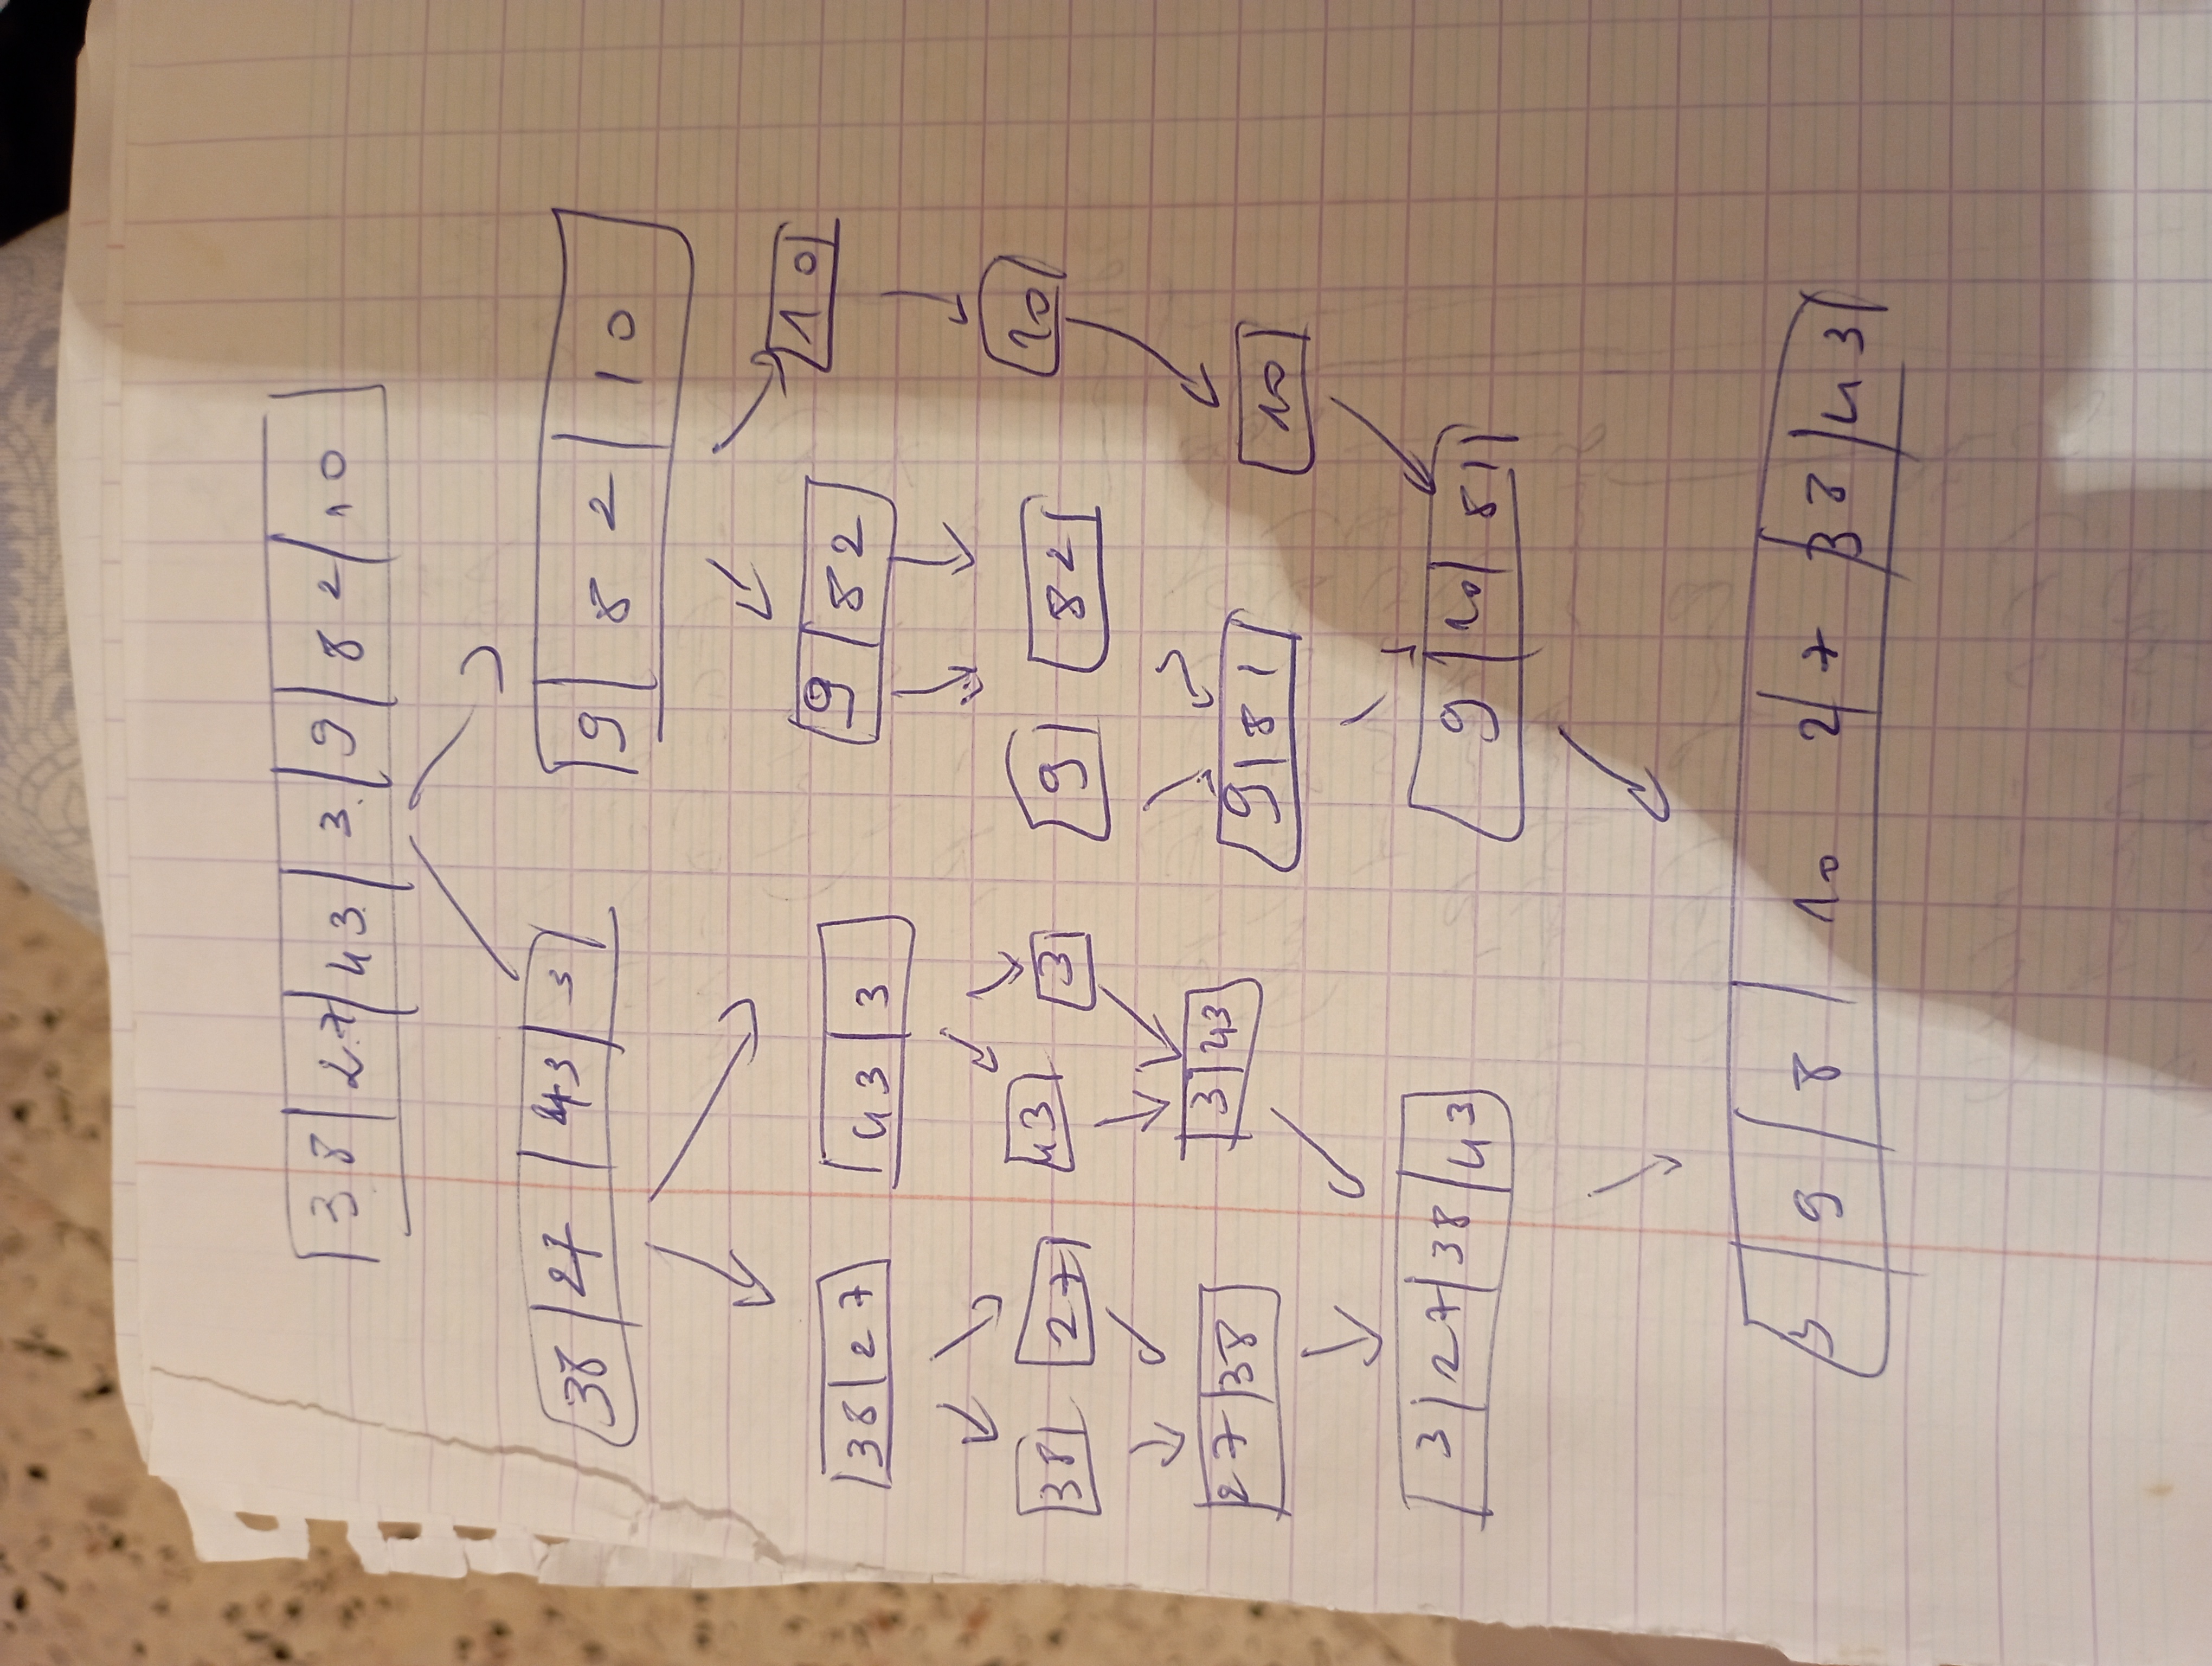 38 | 27 | 43 | 3 | 9 | 82 | 10
38 | 27 | 43 | 3 | 9 | 82 | 10
38 | 27 | 43 | 3 | 9 | 82 | 10
38 | 27 | 43 | 3 | 9 | 82 | 10
27 | 38 | 3 | 43 | 9 | 81 | 10
3 | 27 | 38 | 43 | 9 | 10 | 81
3 | 9 | 8 | 10 27 | 38 | 43